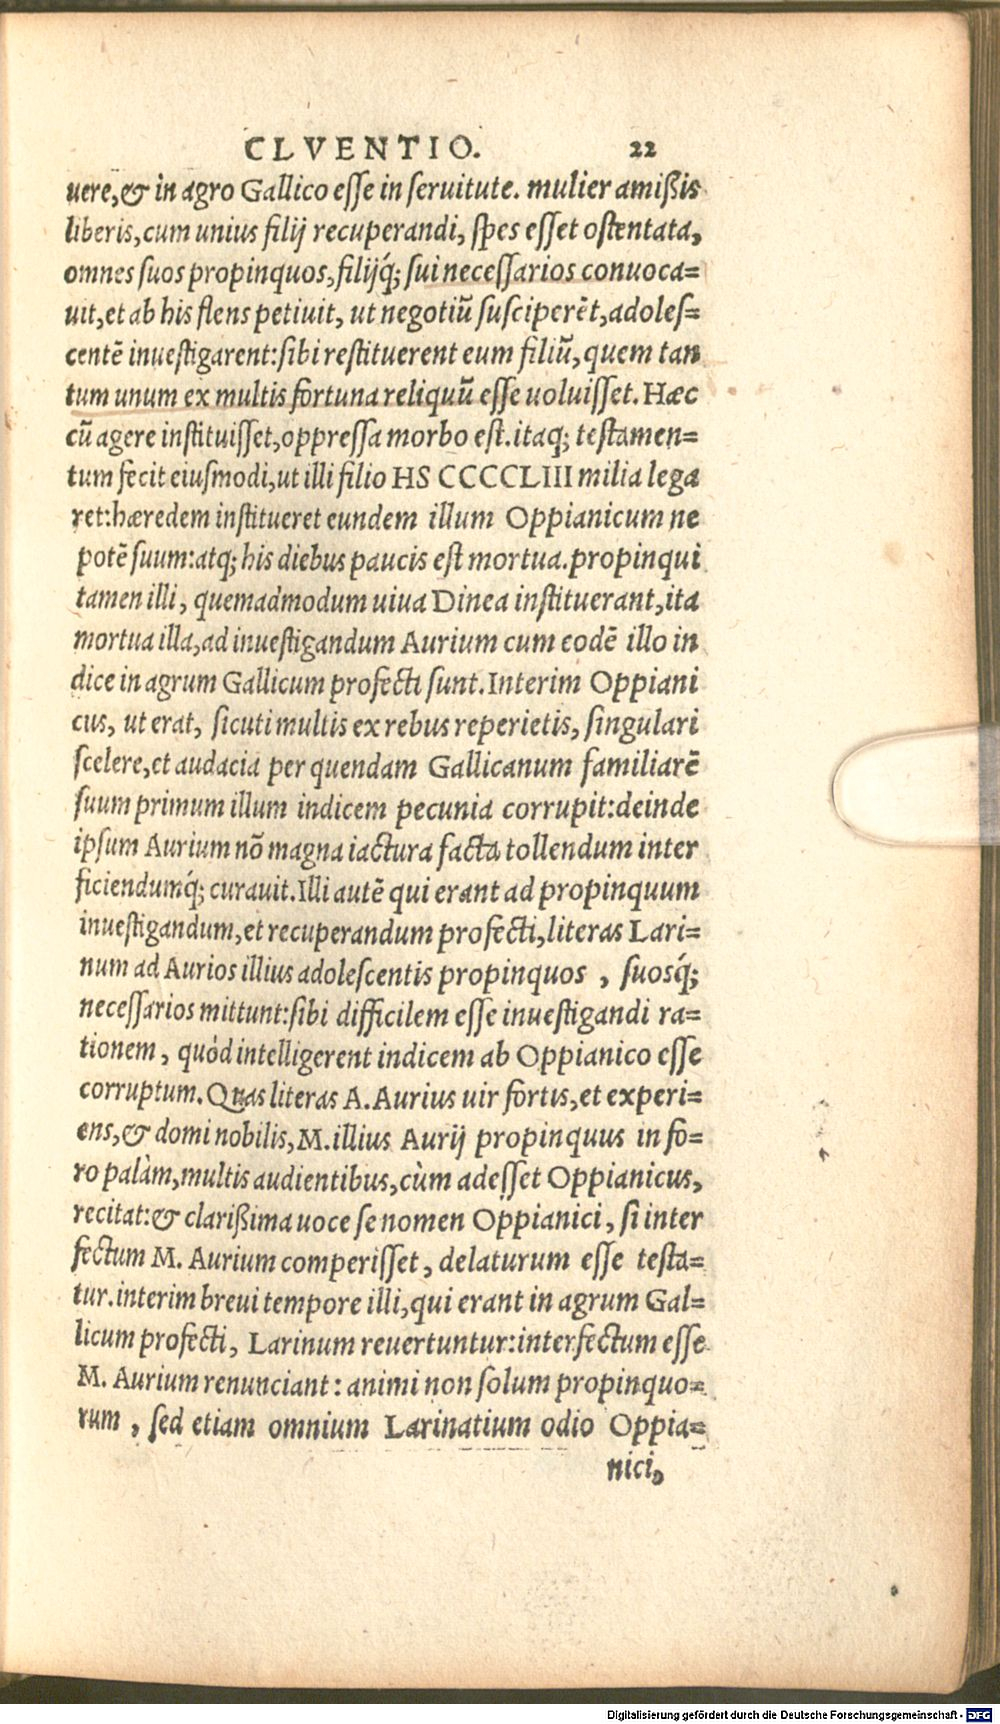 CLVENTIO. 22
uere,& in agro Gallico esse in seruitute. mulier amißis
liberis,cum unius filij recuperandi, spes esset ostentata,
omnes suos propinquos,filijq́; sui necessarios conuoca=
uit,et ab his flens petiuit, ut negotiũ susciperẽt,adoles=
centẽ inuestigarent:sibi restituerent eum filiũ,quem tan
tum unum ex multis fortuna reliquũ esse uoluisset. Hæc
cũ agere instituisset,oppressa morbo est.itaq; testamen=
tum fecit eiusmodi,ut illi filio HS CCCCLIII milia lega
ret:hæredem institueret eundem illum Oppianicum ne
potẽ suum:atq; his diebus paucis est mortua.propinqui
tamen illi, quemadmodum uiua Dinea instituerant,ita
mortua illa,ad inuestigandum Aurium cum eodẽ illo in
dice in agrum Gallicum profecti sunt.Interim Oppiani
cus, ut erat, sicuti multis ex rebus reperietis, singulari
scelere,et audacia per quendam Gallicanum familiarẽ
suum primum illum indicem pecunia corrupit:deinde
ipsum Aurium nõ magna iactura facta tollendum inter
ficiendumq́; curauit.Illi autẽ qui erant ad propinquum
inuestigandum,et recuperandum profecti,literas Lari=
num ad Aurios illius adolescentis propinquos , suosq́;
necessarios mittunt:sibi difficilem esse inuestigandi ra=
tionem, quòd intelligerent indicem ab Oppianico esse
corruptum.Quas literas A.Aurius uir fortis,et experi=
ens,& domi nobilis,M.illius Aurij propinquus in fo=
ro palàm,multis audientibus,cùm adesset Oppianicus,
recitat:& clarißima uoce se nomen Oppianici, si inter
fectum M. Aurium comperisset, delaturum esse testa=
tur.interim breui tempore illi,qui erant in agrum Gal=
licum profecti, Larinum reuertuntur:interfectum esse
M. Aurium renunciant: animi non solum propinquo=
rum , sed etiam omnium Larinatium odio Oppia=
nici,
Digitalisierung gefördert durch die Deutsche Forschungsgemeinschaft - DFG